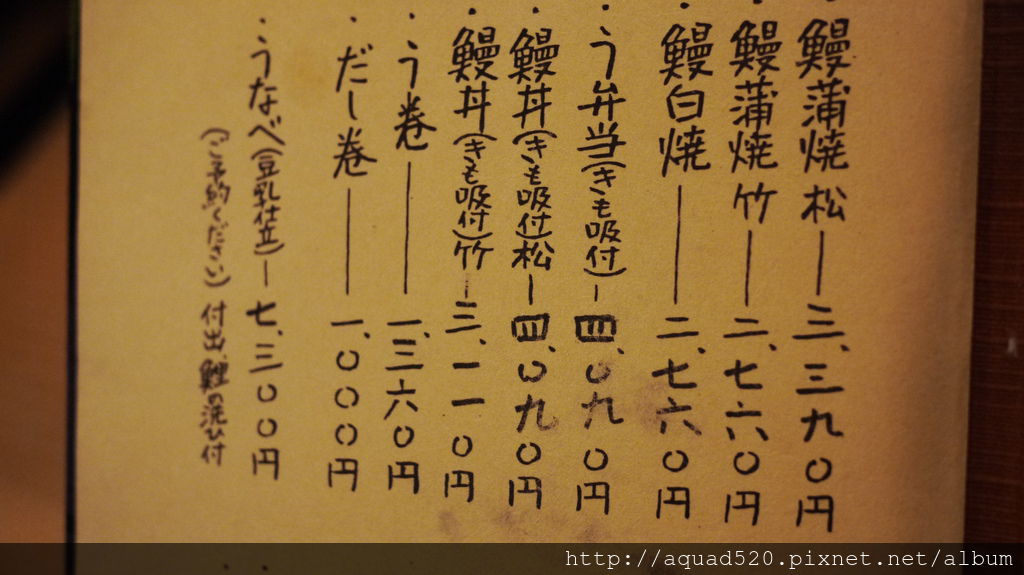 ・鰻蒲焼 松 ── 三、三九〇円
・鰻蒲焼 竹 ── 二、七六〇円
・鰻白焼 ── 二、七六〇円
・う弁当(きも吸付) ─ 四、〇九〇円
・鰻丼(きも吸付)松 ─ 四、〇九〇円
・鰻丼(きも吸付)竹 ─ 三、一一〇円
・う巻 ── 一、三六〇円
・だし巻 ── 一、〇〇〇円
・うなべ(豆乳仕立) ─ 七、三〇〇円
(ご予約ください) 付出、鯉の洗い付
http://aquad520.pixnet.net/album